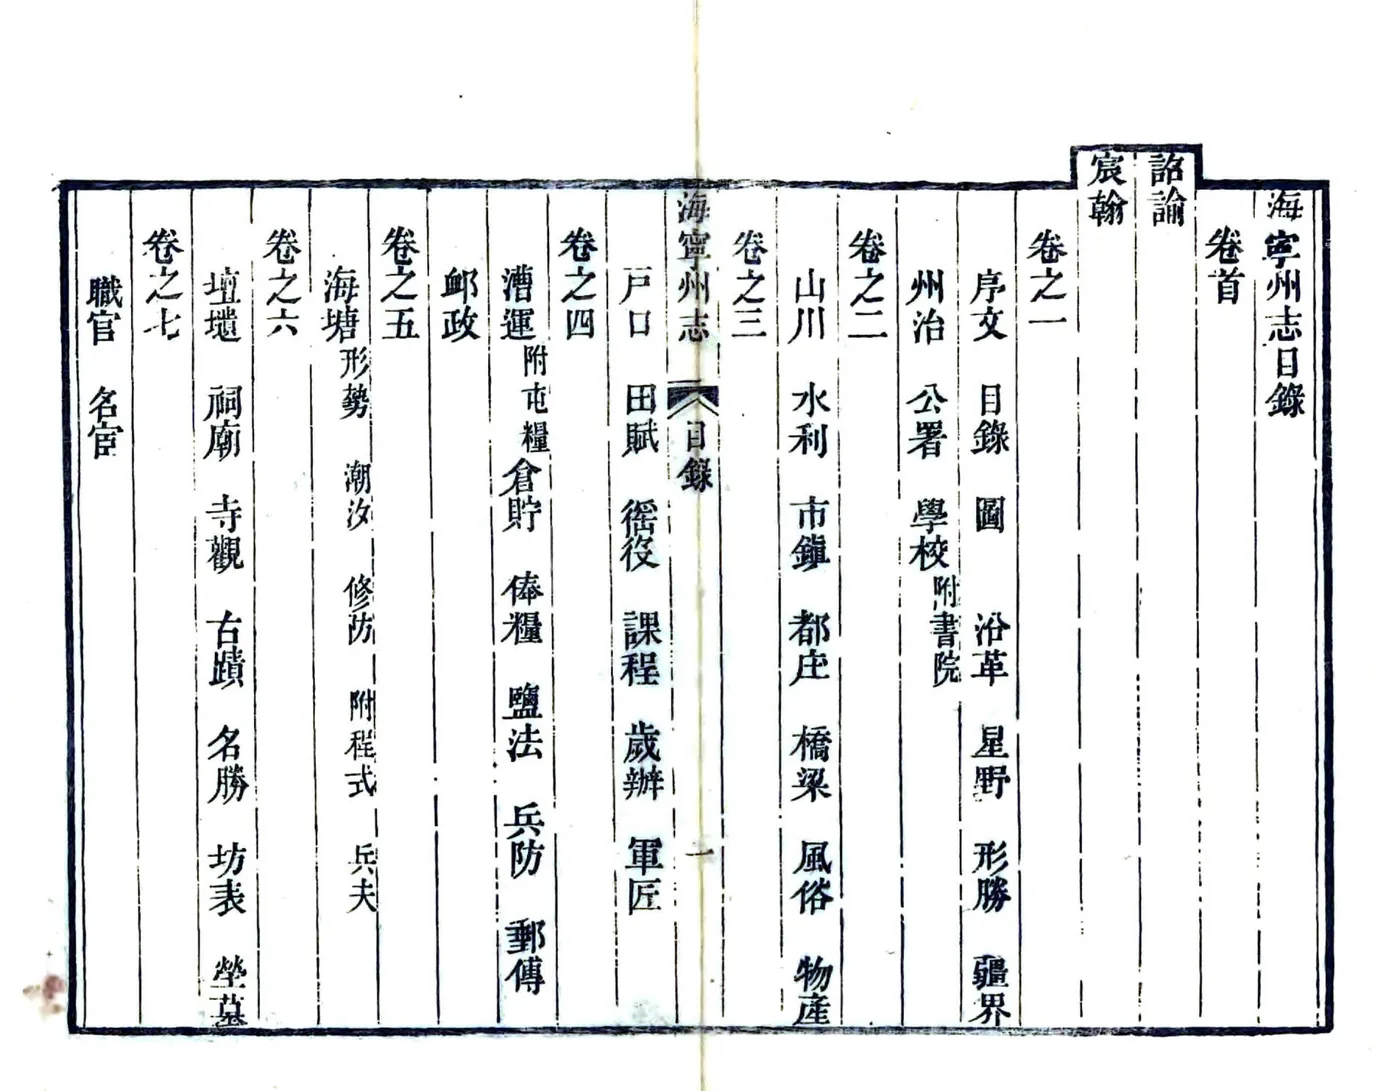 海寧州志目錄
卷首
詔諭
宸翰
卷之一
序文 目錄 圖 沿革 星野 形勝 疆界
州治 公署 學校附書院
卷之二
山川 水利 市鎮 都庄 橋梁 風俗 物產
卷之三
海寧州志 目錄 一
戸口 田賦 徭役 課程 歲辦 軍匠
卷之四
漕運附屯糧 倉貯 俸糧 鹽法 兵防 郵傳
䘏政
卷之五
海塘形勢 潮汐 修防 附程式 兵夫
卷之六
壇壝 祠廟 寺觀 古蹟 名勝 坊表 塋墓
卷之七
職官 名宦